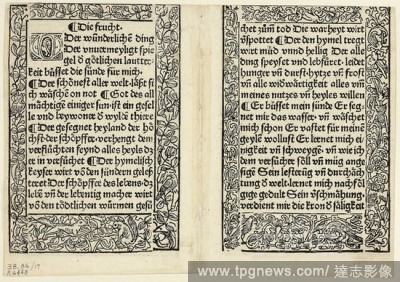 ¶ Die frucht.
O Der wünderliche ding
Der vnuermeyligt spie
gel d götlichen lautter-
keit büsset die sünde für mich.
¶ Der schönest aller welt-läst si
ch wäsche on not ¶ Got des all
mächtige einiger sun-ist ein gesel
le vnd beywoner d wylde thiere
¶ Der gesegnet heyland der hö
chst-der schöpffer-verhengt dem
verflüchten feynd alles heyls dz
er in versüchet ¶ Der hymelisch
keyser wirt võ den sündern gelest
teret Der schöpffer des lebens-dz
lebẽ vñ der lebentig macher wirt
võ den tödtlichen würmen gesü
chet zům tod Die warheyt wirt
vspottet ¶ Der den hymel tregt
wirt müd vnd hellig Der alle
ding speyset vnd lebfüret-leidet
hunger vñ durst-hytze vñ frost
vñ alle widwärtigkeit alles võ
meines nutzes võ heyles willen
¶ Er büsset mein sünde Er seg
net mir das wasser-võ wäschet
mich schon Er vastet für meine
geyle wollust Er lernet mich ei
nigkeit võ schweygẽ-võ wie ich
dem versücher söll vñ müg ange
sigẽ Sein lesterũg võ durchäch
tung d welt-lernet mich nachföl
gige gedult Sein vschmähung-
verdient mir die kron d säligkeit
38.116/17
www.tpgnews.com / 達志影像